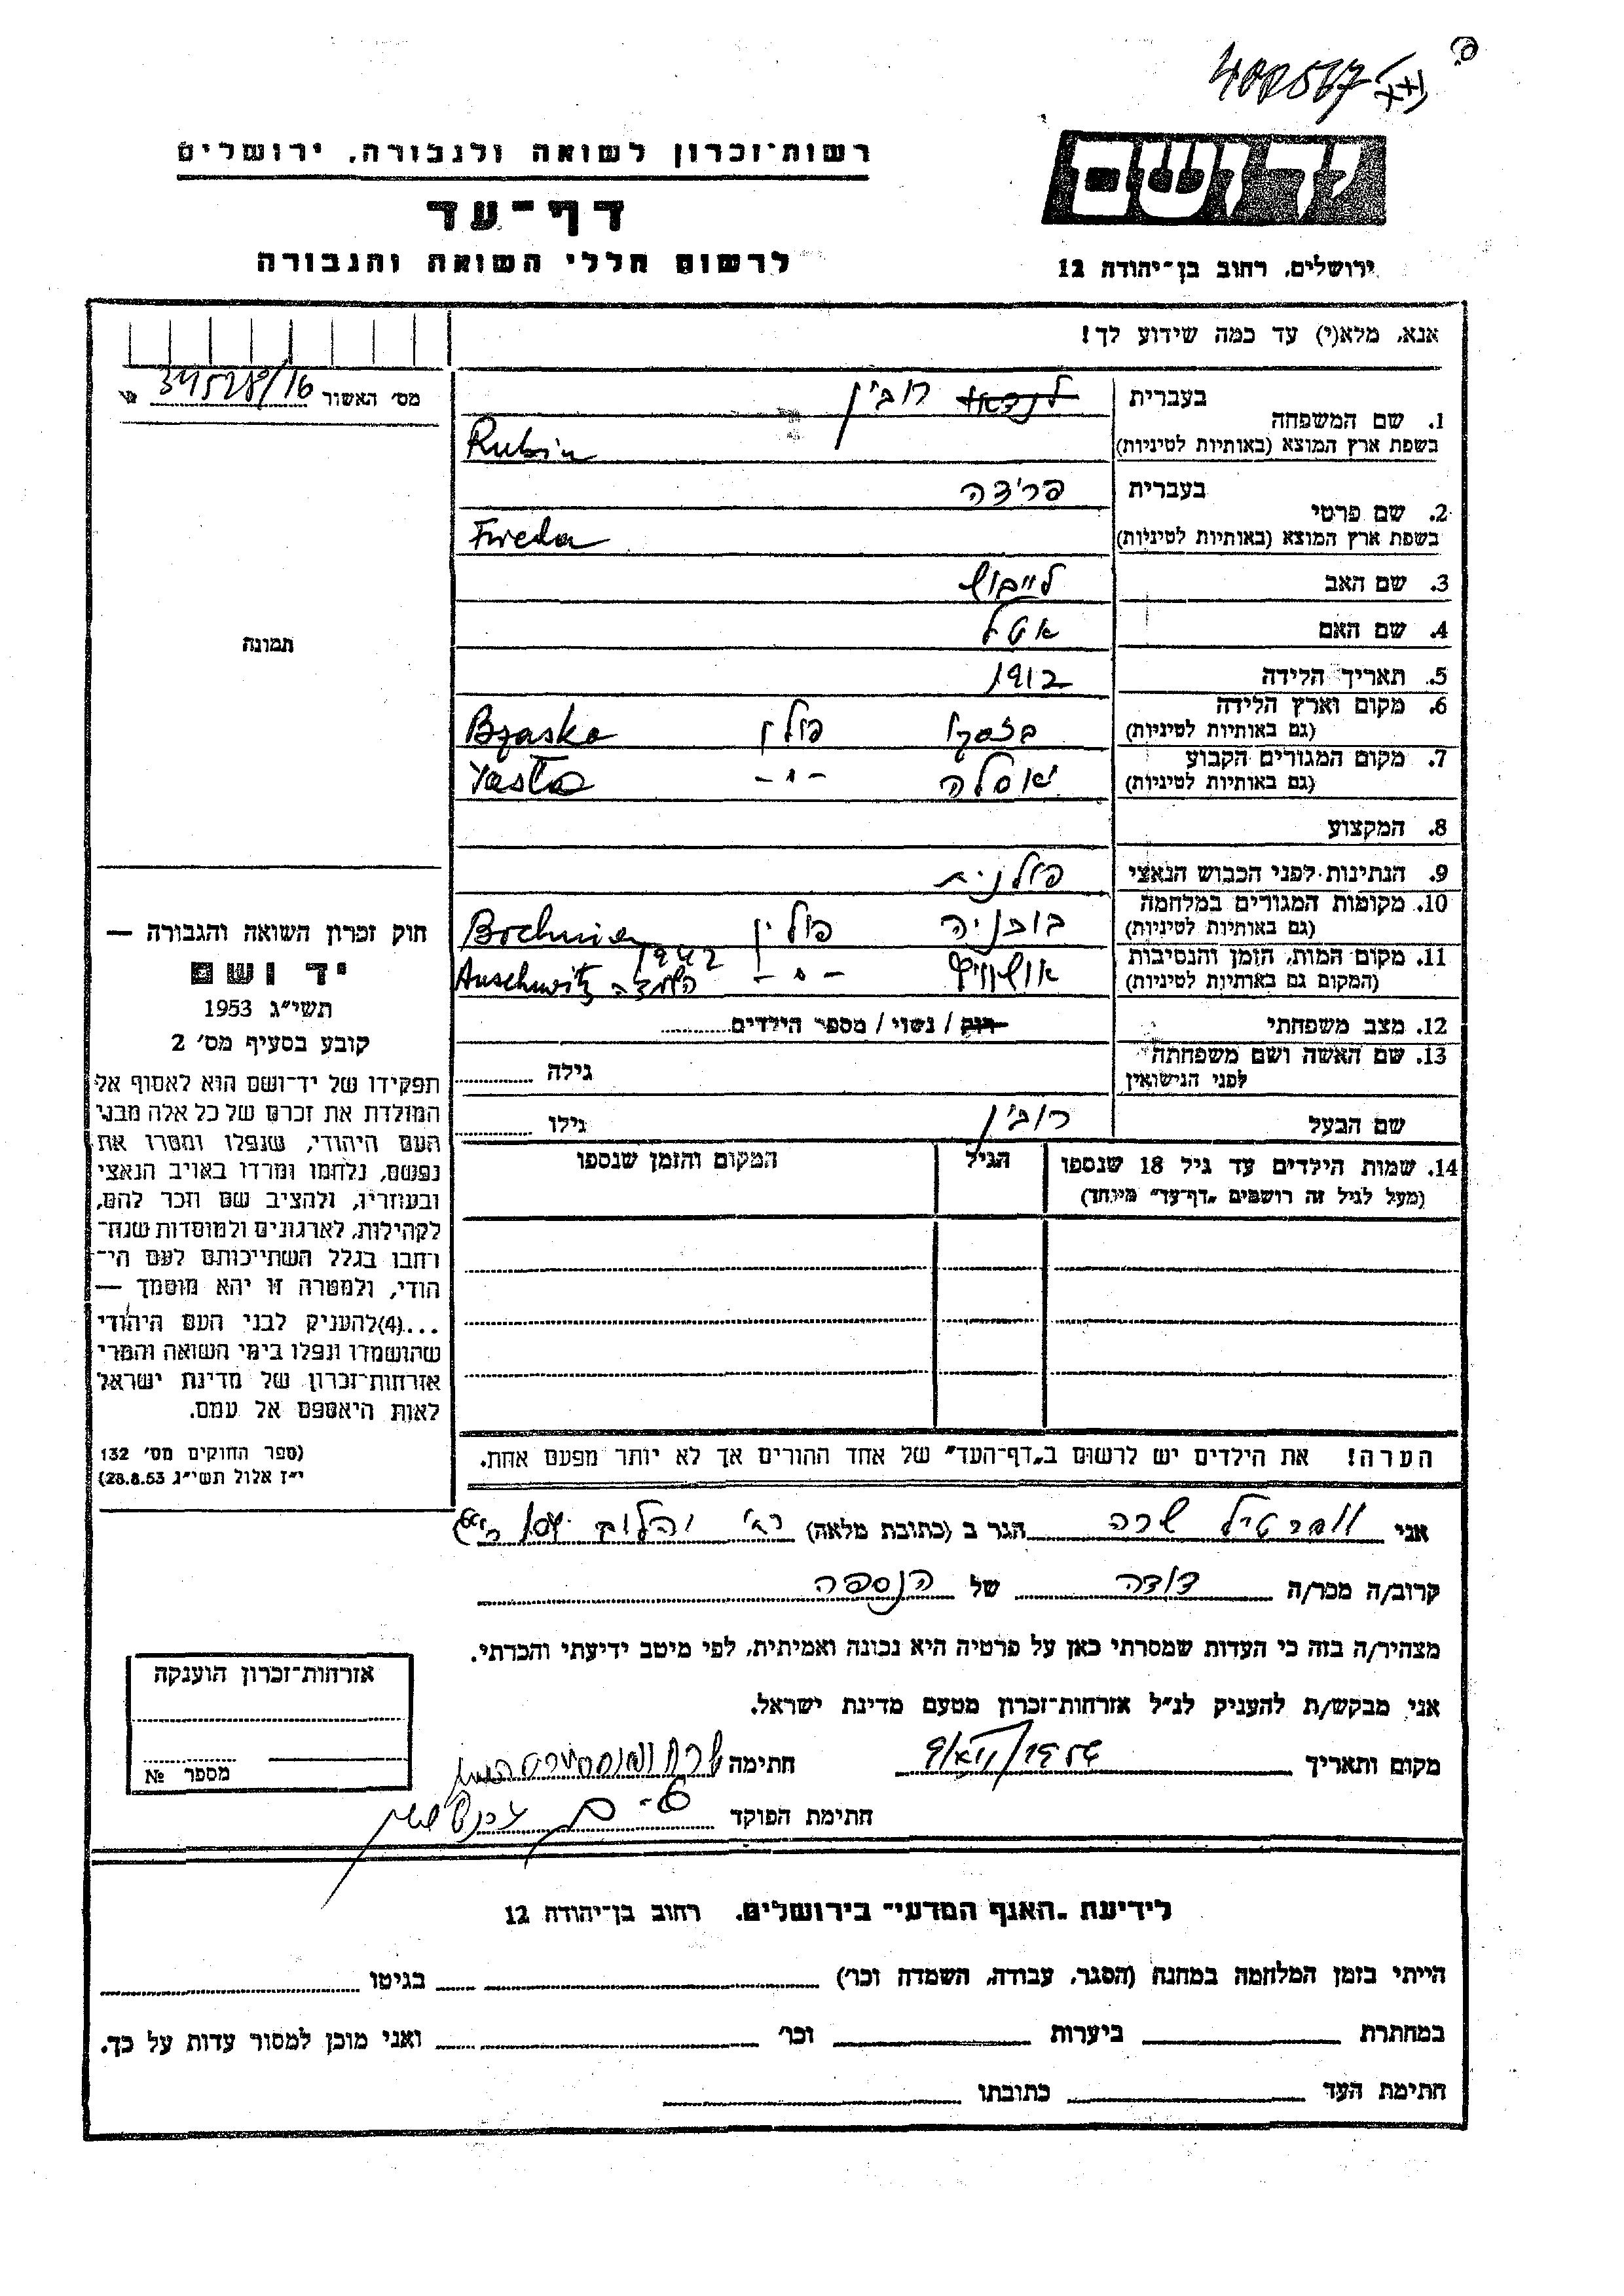 400567
רשות־זכרון לשואה ולגבורה, ירושלים
דף־עד
לרשום חללי השואה והגבורה
יד ושם
ירושלים, רחוב בן־יהודה 12
אנא, מלא(י) עד כמה שידוע לך!
מס׳ האשור 34528/16
תמונה
1. שם המשפחה בעברית לנדאו רובין
בשפת ארץ המוצא (באותיות לטיניות) Rubin
2. שם פרטי בעברית פרידה
בשפת ארץ המוצא (באותיות לטיניות) Freda
3. שם האב לייבוש
4. שם האם אטל
5. תאריך הלידה 1912
6. מקום וארץ הלידה (גם באותיות לטיניות) פולין Bzasko
7. מקום המגורים הקבוע (גם באותיות לטיניות) יאסלה -"- Yasla
8. המקצוע
9. הנתינות לפני הכבוש הנאצי פולנית
10. מקומות המגורים במלחמה (גם באותיות לטיניות) בוכניה פולין Bochnia
11. מקום המות, הזמן והנסיבות (המקום גם באותיות לטיניות) אושוויץ -"- 1942 השמדה Auschwitz
12. מצב משפחתי רוק / נשוי / מספר הילדים
13. שם האשה ושם משפחתה לפני הנישואין גילה
שם הבעל רובין גילו
14. שמות הילדים עד גיל 18 שנספו הגיל המקום והזמן שנספו
(מעל לגיל זה רושמים „דף־עד״ מיוחד)
חוק זכרון השואה והגבורה —
יד ושם
תשי״ג 1953
קובע בסעיף מס׳ 2
תפקידו של יד־ושם הוא לאסוף אל
המולדת את זכרם של כל אלה מבני
העם היהודי, שנפלו ומסרו את
נפשם, נלחמו ומרדו באויב הנאצי
ובעוזריו, ולהציב שם וזכר להם,
לקהילות, לארגונים ולמוסדות שנח־
רחבו בגלל השתייכותם לעם הי־
הודי, ולמטרה זו יהא מוסמך —
...(4)להעניק לבני העם היהודי
שהושמדו ונפלו בימי השואה והמרי
אזרחות־זכרון של מדינת ישראל
לאות היאספם אל עמם.
(ספר החוקים מס׳ 132
י״ז אלול תשי״ג 28.8.53)
הערה! את הילדים יש לרשום ב„דף־העד״ של אחד ההורים אך לא יותר מפעם אחת.
אני שרה הגר ב (כתובת מלאה)
קרוב/ה מכר/ה דודה של הנספה
מצהיר/ה בזה כי העדות שמסרתי כאן על פרטיה היא נכונה ואמיתית, לפי מיטב ידיעתי והכרתי.
אני מבקש/ת להעניק לנ״ל אזרחות־זכרון מטעם מדינת ישראל.
מקום ותאריך חתימה
חתימת הפוקד
אזרחות־זכרון הוענקה
מספר №
לידיעת „האגף המדעי״ בירושלים, רחוב בן־יהודה 12
הייתי בזמן המלחמה במחנה (הסגר, עבודה, השמדה וכר׳) בגיטו
במחתרת ביערות וכר׳ ואני מוכן למסור עדות על כך.
חתימת העד כתובתו